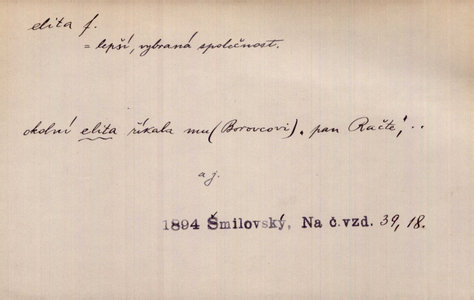 elita f.
= lepší, vybraná společnost.
okolní elita říkala mu (Borovcovi) „pan Račte“, ..
a j.
1894 Šmilovský, Na č.vzd. 39, 18.